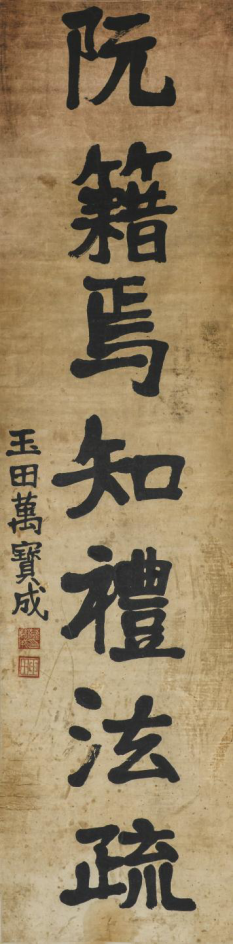 阮籍焉知禮法疏
玉田萬寶成